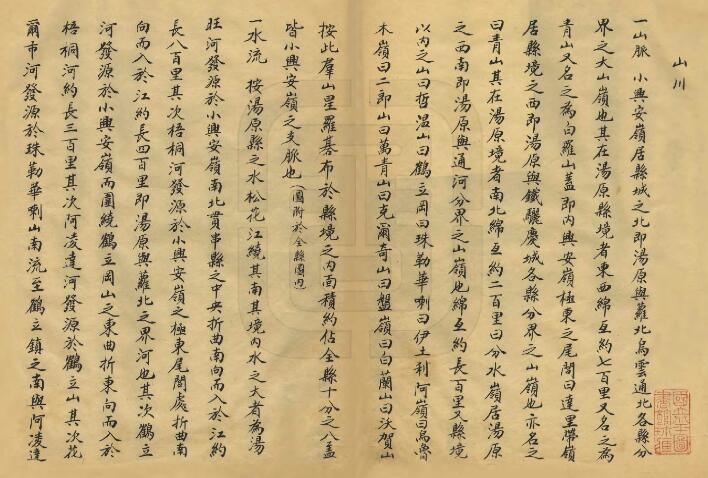 山川
一山脈　小興安嶺居縣城之北即湯原與蘿北烏雲通北各縣分
界之大山嶺也其在湯原縣境者東西綿亙約七百里又名之為
青山又名之為白羅山蓋即內興安嶺極東之尾閭曰達里帶嶺
居縣境之西即湯原與鐵驪慶城各縣分界之山嶺也亦名之
曰青山其在湯原境者南北綿亙約二百里曰分水嶺居湯原
之西南即湯原與通河分界之山嶺也綿亙約長百里又縣境
以內之山曰哲温山曰鶴立岡曰珠勒華喇曰伊土利阿嶺曰烏魯
木嶺曰二郎山曰萬青山曰克爾奇山曰盤嶺曰白蘭山曰汏賀山
按此羣山星羅碁布於縣境之內面積約佔全縣十分之八蓋
皆小興安嶺之支脈也（圖附於全縣圖內
一水流　按湯原縣之水松花江繞其南其境內水之大者為湯
旺河發源於小興安嶺南北貫串縣之中央折曲南向而入於江約
長八百里其次梧桐河發源於小興安嶺之極東尾閭處折曲南
向而入於江約長四百里即湯原與蘿北之界河也其次鶴立
河發源於小興安嶺而圍繞鶴立岡山之東曲折東向而入於
梧桐河約長三百里其次阿凌達河發源於鶴立山其次花
爾布河發源於珠勒華喇山南流至鶴立鎮之南與阿凌達